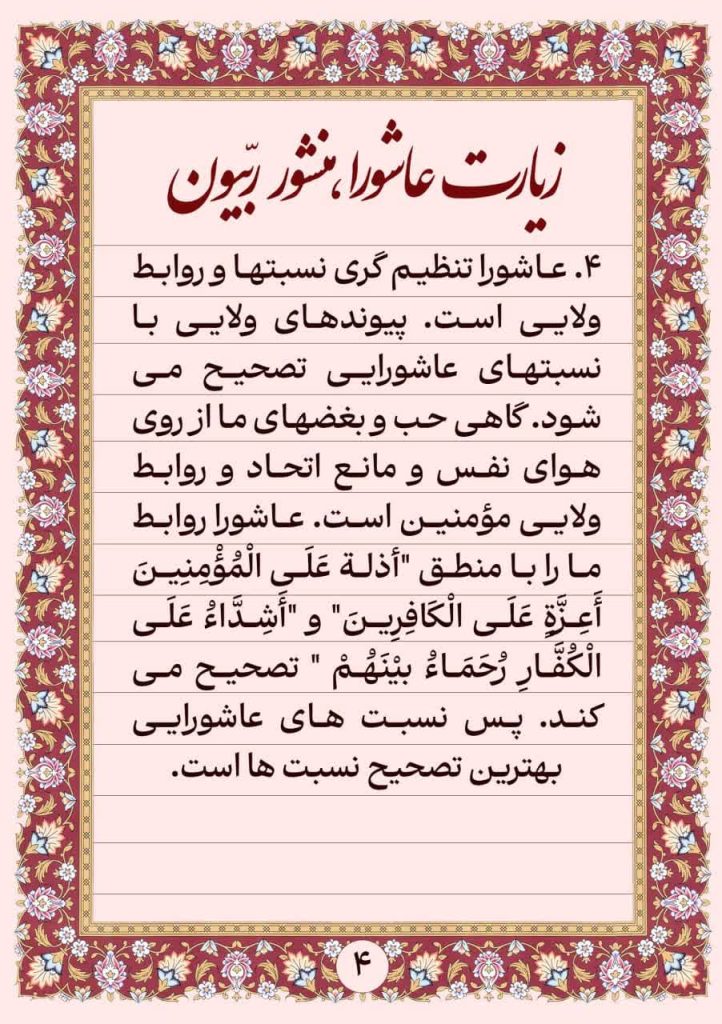 زیارت عاشورا، منشور ربّیون
۴. عاشورا تنظیم گری نسبتها و روابط
ولایی است. پیوندهای ولایی با
نسبتهای عاشورایی تصحیح می
شود. گاهی حب و بغضهای ما از روی
هوای نفس و مانع اتحاد و روابط
ولایی مؤمنین است. عاشورا روابط
ما را با منطق "أذلة عَلَی الْمُؤْمِنِینَ
أَعِزَّةٍ عَلَی الْکَافِرِینَ" و "أَشِدَّاءُ عَلَی
الْکُفَّارِ رُحَمَاءُ بیْنَهُمْ " تصحیح می
کند. پس نسبت های عاشورایی
بهترین تصحیح نسبت ها است.
۴